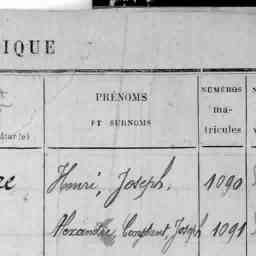 IQUE
PRÉNOMS
ET SURNOMS
NUMÉROS
ma-
tricules
re Henri, Joseph. 1090
Alexandre, Constant, Joseph 1091